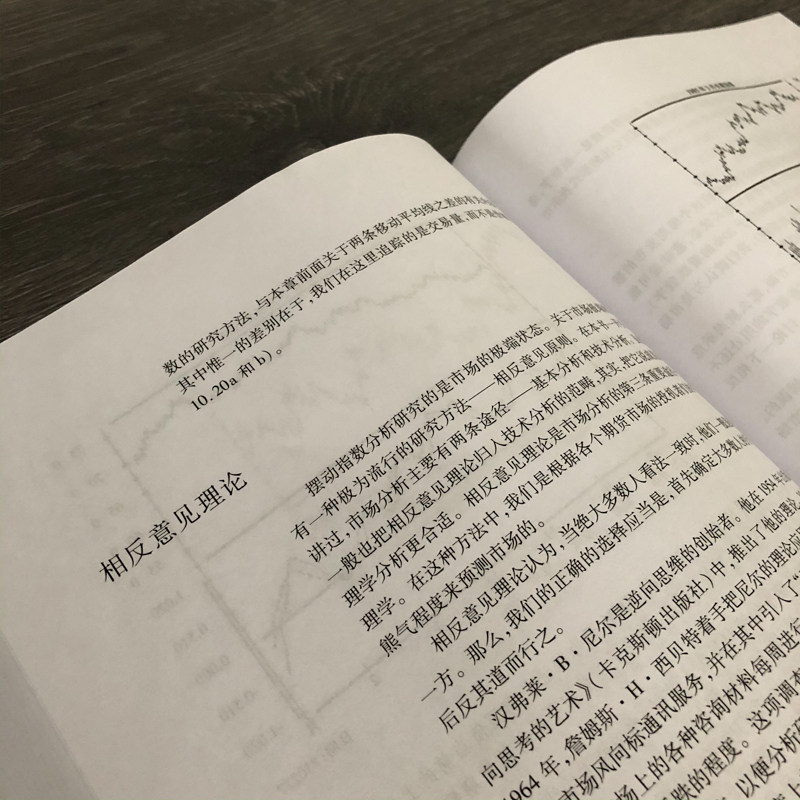 数的研究方法,与本章前面关于两条移动平均线之差的有关
其中惟一的差别在于,我们在这里追踪的是交易量,而不是
10.20a 和 b)。
相反意见理论
摆动指数分析研究的是市场的极端状态。关于市场
有一种极为流行的研究方法——相反意见原则。在本书一
讲过,市场分析主要有两条途径——基本分析和技术分析。
一般也把相反意见理论归入技术分析的范畴,其实,把它
理学分析更合适。相反意见理论是市场分析的第三条重要
理学。在这种方法中,我们是根据各个期货市场的投机者
熊气程度来预测市场的。
相反意见理论认为,当绝大多数人看法一致时,他们一般
一方。那么,我们的正确的选择应当是,首先确定大多数人
后反其道而行之。
汉弗莱·B·尼尔是逆向思维的创始者。他在1954年
向思考的艺术》(卡克斯顿出版社)中,推出了他的理论
1964 年,詹姆斯·H·西贝特着手把尼尔的理论应
市场风向标通讯服务,并在其中引入了“
场上的各种咨询材料每周进行
跌的程度。这项调查
以便分析